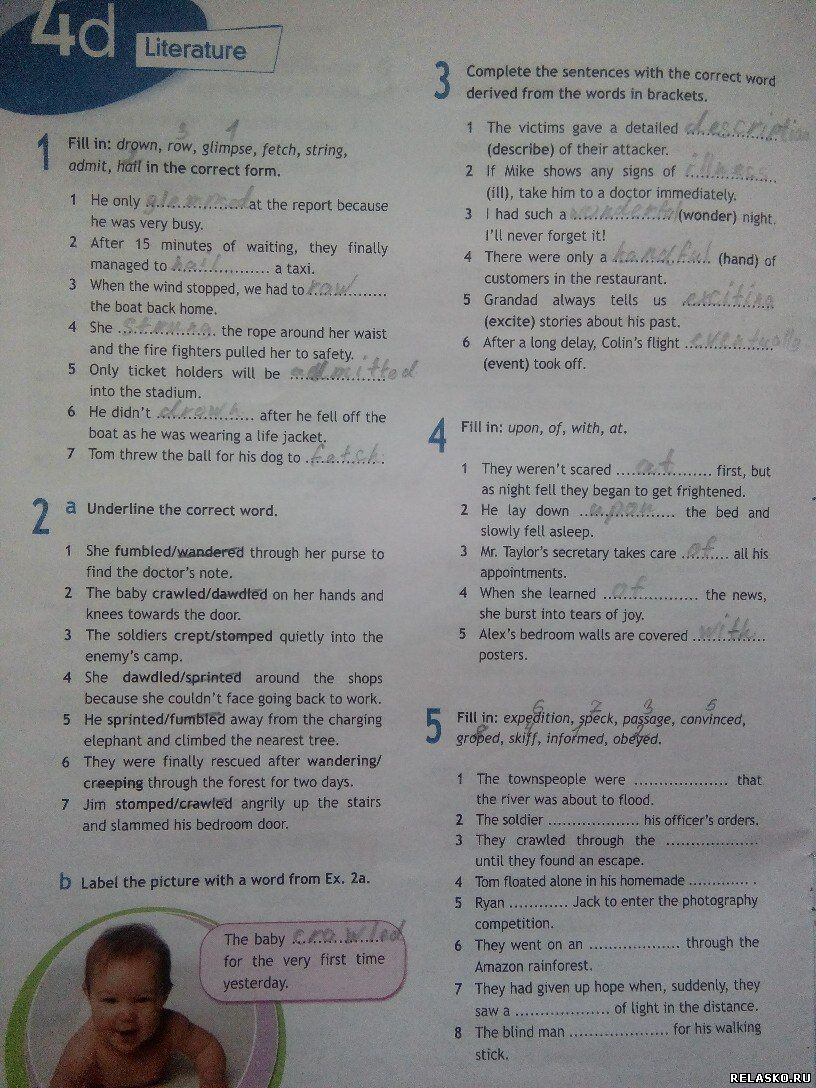 4d Literature
1 Fill in: drown, row, glimpse, fetch, string,
admit, hail in the correct form.
1 He only .................. at the report because
he was very busy.
2 After 15 minutes of waiting, they finally
managed to hail .................. a taxi.
3 When the wind stopped, we had to raw ..........
the boat back home.
4 She .................. the rope around her waist
and the fire fighters pulled her to safety.
5 Only ticket holders will be admitted
into the stadium.
6 He didn't drown .................. after he fell off the
boat as he was wearing a life jacket.
7 Tom threw the ball for his dog to fetch .
2 a Underline the correct word.
1 She fumbled/wandered through her purse to
find the doctor's note.
2 The baby crawled/dawdled on her hands and
knees towards the door.
3 The soldiers crept/stomped quietly into the
enemy's camp.
4 She dawdled/sprinted around the shops
because she couldn't face going back to work.
5 He sprinted/fumbled away from the charging
elephant and climbed the nearest tree.
6 They were finally rescued after wandering/
creeping through the forest for two days.
7 Jim stomped/crawled angrily up the stairs
and slammed his bedroom door.
b Label the picture with a word from Ex. 2a.
The baby crawled
for the very first time
yesterday.
3 Complete the sentences with the correct word
derived from the words in brackets.
1 The victims gave a detailed description
(describe) of their attacker.
2 If Mike shows any signs of illness
(ill), take him to a doctor immediately.
3 I had such a wonderful (wonder) night.
I'll never forget it!
4 There were only a handful (hand) of
customers in the restaurant.
5 Grandad always tells us exciting
(excite) stories about his past.
6 After a long delay, Colin's flight eventually
(event) took off.
4 Fill in: upon, of, with, at.
1 They weren't scared at .................. first, but
as night fell they began to get frightened.
2 He lay down upon .................. the bed and
slowly fell asleep.
3 Mr. Taylor's secretary takes care of .......... all his
appointments.
4 When she learned of .................. the news,
she burst into tears of joy.
5 Alex's bedroom walls are covered with
posters.
5 Fill in: expedition, speck, passage, convinced,
groped, skiff, informed, obeyed.
1 The townspeople were .................. that
the river was about to flood.
2 The soldier .................. his officer's orders.
3 They crawled through the ..................
until they found an escape.
4 Tom floated alone in his homemade ............. .
5 Ryan ............ Jack to enter the photography
competition.
6 They went on an .................. through the
Amazon rainforest.
7 They had given up hope when, suddenly, they
saw a .................. of light in the distance.
8 The blind man .................. for his walking
stick.
RELASKO.RU